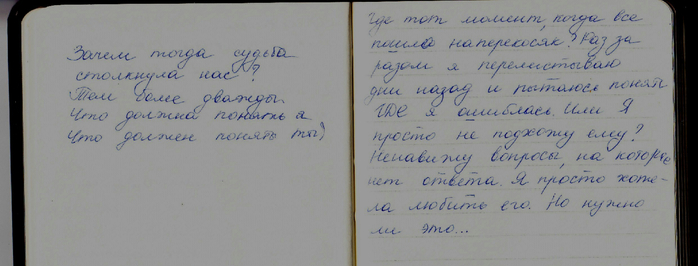 Зачем тогда судьба
столкнула нас?
Тем более дважды.
Что должна понять я
Что должен понять ты)
Где тот момент, когда все
пошло наперекосяк? Раз за
разом я перелистываю
дни назад и пытаюсь понять
ГДЕ я ошиблась. Или Я
просто не подхожу ему?
Ненавижу вопросы, на которые
нет ответа. Я просто хоте-
ла любить его. Но нужно
ли это...